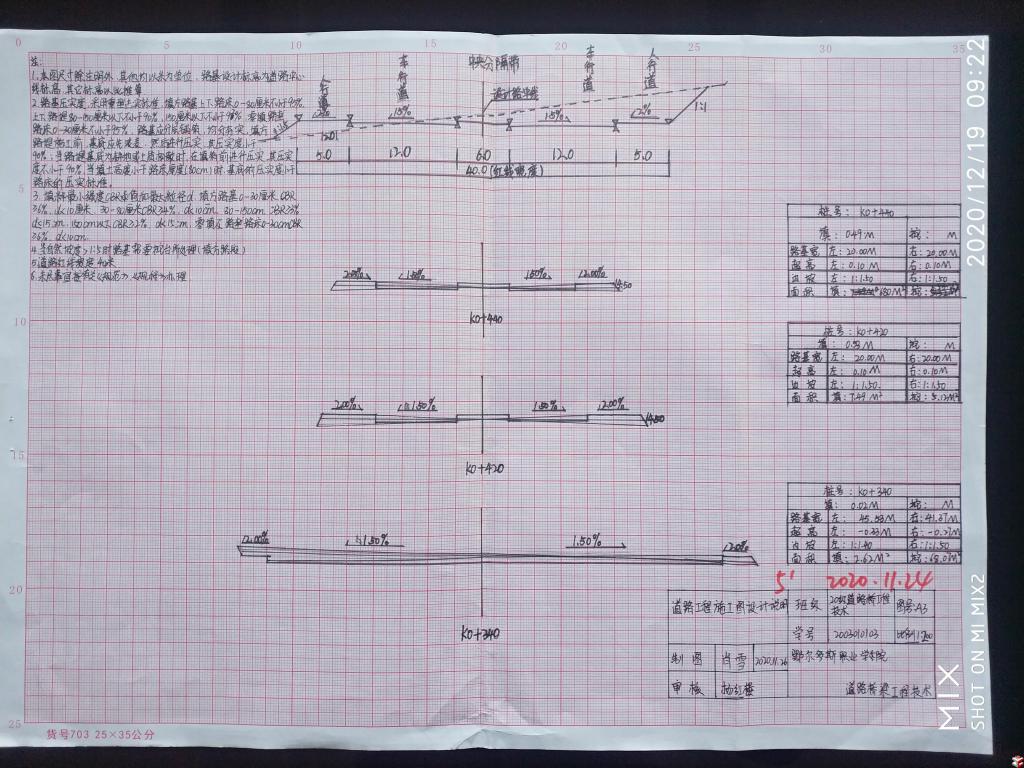 0 5 10 15 20 25 30 35
注:
1.本图尺寸除注明外,其他均以米为单位,路基设计标高为道路中心
线标高,其它标高以此推算
2.路基压实度,采用重型击实标准,填方路基上下路床0-80厘米不小于95%,
上下路堤80-150厘米以下不小于90%,
路床0-30厘米不小于95%,
路堤施工前,基底应先清表,然后进行压实,其压实度不小于
90%;
度不小于90%,当填土高度小于路床厚度(80cm)时,基底的压实度不小于
路床的压实标准。
3.填料最小强度CBR和 最大粒径d,填方路基0-30厘米CBR
≥6%,d≤10厘米,30-80厘米CBR≥4%,d≤10cm,80-150cm,CBR≥3%
d≤15cm,150cm以下CBR≥2%,d≤15cm,零填及路堑路床0-30cmCBR
≥6%,d≤10cm.
4.当自然坡度>1:5时路基需要挖台阶处理(填方路段)
5.道路红线宽度40米
6.未尽事宜按有关《规范》《规程》办理
人行道
车行道
中央分隔带
车行道
人行道
设计路中线
2% 1.5% 1.5% 2%
1:1
5.0 12.0 6.0 12.0 5.0
40.0(红线宽度)
5
2.00% 1.50% 1.50% 2.00%
1:1.50
K0+440
10
2.00% 1.50% 1.50% 2.00%
1:1.50
K0+420
15
2.00% 1.50% 1.50% 2.0%
K0+340
20
25
桩号:K0+440
填:0.49M 挖: M
路基宽 左:20.00M 右:20.00M
超高 左:0.10M 右:0.10M
边坡 左:1:1.50 右:1:1.50
面积 填: 6.80M² 挖:
桩号:K0+420
填:0.53M 挖: M
路基宽 左:20.00M 右:20.00M
超高 左:0.10M 右:0.10M
边坡 左:1:1.50 右:1:1.50
面积 填:7.49M² 挖:5.12M²
桩号:K0+340
填:0.02M 挖: M
路基宽 左:45.53M 右:41.37M
超高 左:-0.33M 右:-0.27M
边坡 左:1:1.40 右:1:1.50
面积 填:2.62M² 挖:68.07M²
5' 2020.11.24
道路工程施工图设计说明 班级 20级道路桥工程技术 图号:A3
学号 2003010103 比例1:200
制图 肖雪 2020.11.26 鄂尔多斯职业学院
审核 道路桥梁工程技术
货号703 25×35公分
2020/12/19 09:22
MIX
SHOT ON MI MIX2